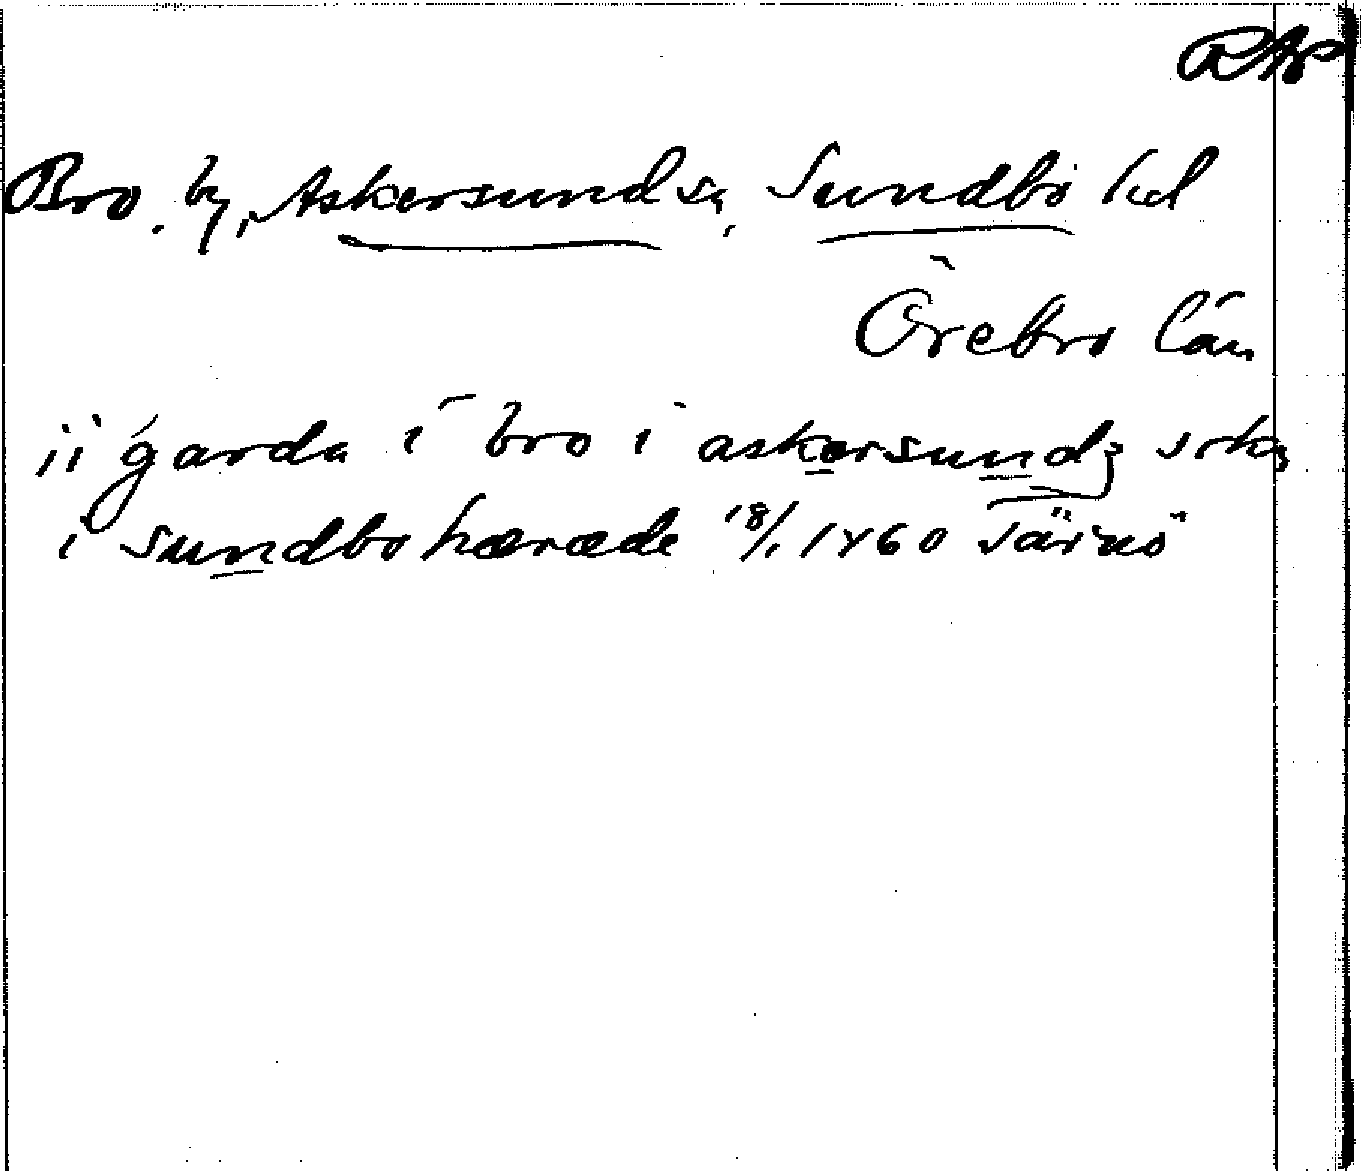 RAP
Bro, by, Askersunds sn, Sundbo hd
Örebro län
ii garda i bro i askersundz sokn
i sundbo hæræde 18/1 1460 Särnö